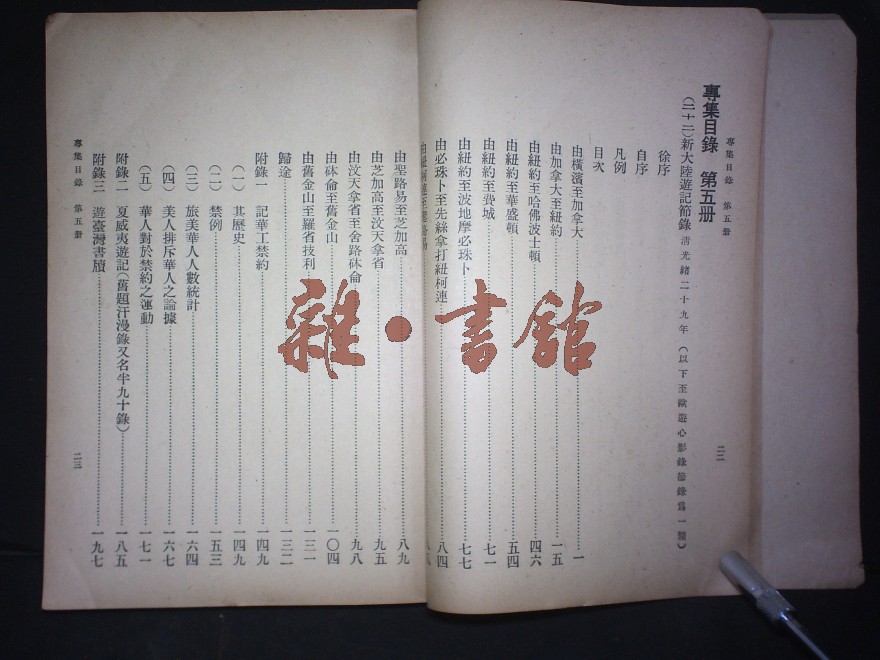 專集目錄 第五册
二二
專集目錄 第五册
(二十二)新大陸遊記節錄 清光緒二十九年(以下至歐遊心影錄節錄為一類)
徐序
自序
凡例
目次
由橫濱至加拿大⋯⋯一
由加拿大至紐約⋯⋯一五
由紐約至哈佛波士頓⋯⋯四六
由紐約至華盛頓⋯⋯五四
由紐約至費城⋯⋯七一
由紐約至波地摩必珠卜⋯⋯七七
由必珠卜至先絲拿打紐柯連⋯⋯八四
由聖路易至芝加高⋯⋯八九
由芝加高至汶天拿省⋯⋯九五
由汶天拿省至舍路砵侖⋯⋯九八
由砵侖至舊金山⋯⋯一〇四
由舊金山至羅省技利⋯⋯一三一
歸途⋯⋯一三二
附錄一 記華工禁約⋯⋯一四九
(一)其歷史⋯⋯一四九
(二)禁例⋯⋯一五三
(三)旅美華人人數統計⋯⋯一六四
(四)美人排斥華人之論據⋯⋯一六七
(五)華人對於禁約之運動⋯⋯一七一
附錄二 夏威夷遊記(舊題汗漫錄又名半九十錄)⋯⋯一八五
附錄三 遊臺灣書牘⋯⋯一九七
專集目錄 第五册
二三
雜·書館